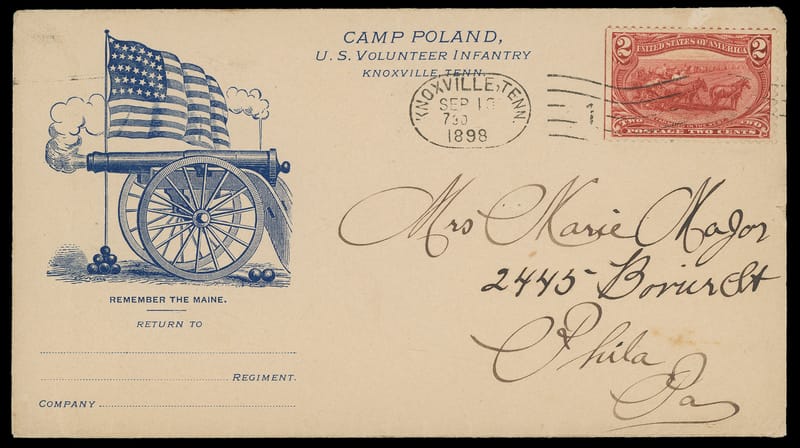 CAMP POLAND,
U.S. VOLUNTEER INFANTRY
KNOXVILLE, TENN.
KNOXVILLE, TENN.
SEP 13
730
1898
1
2 2
UNITED STATES OF AMERICA
TWO TWO
POSTAGE TWO CENTS
Mrs Marie Major
2445 St
Phila
Pa
REMEMBER THE MAINE.
RETURN TO
REGIMENT.
COMPANY